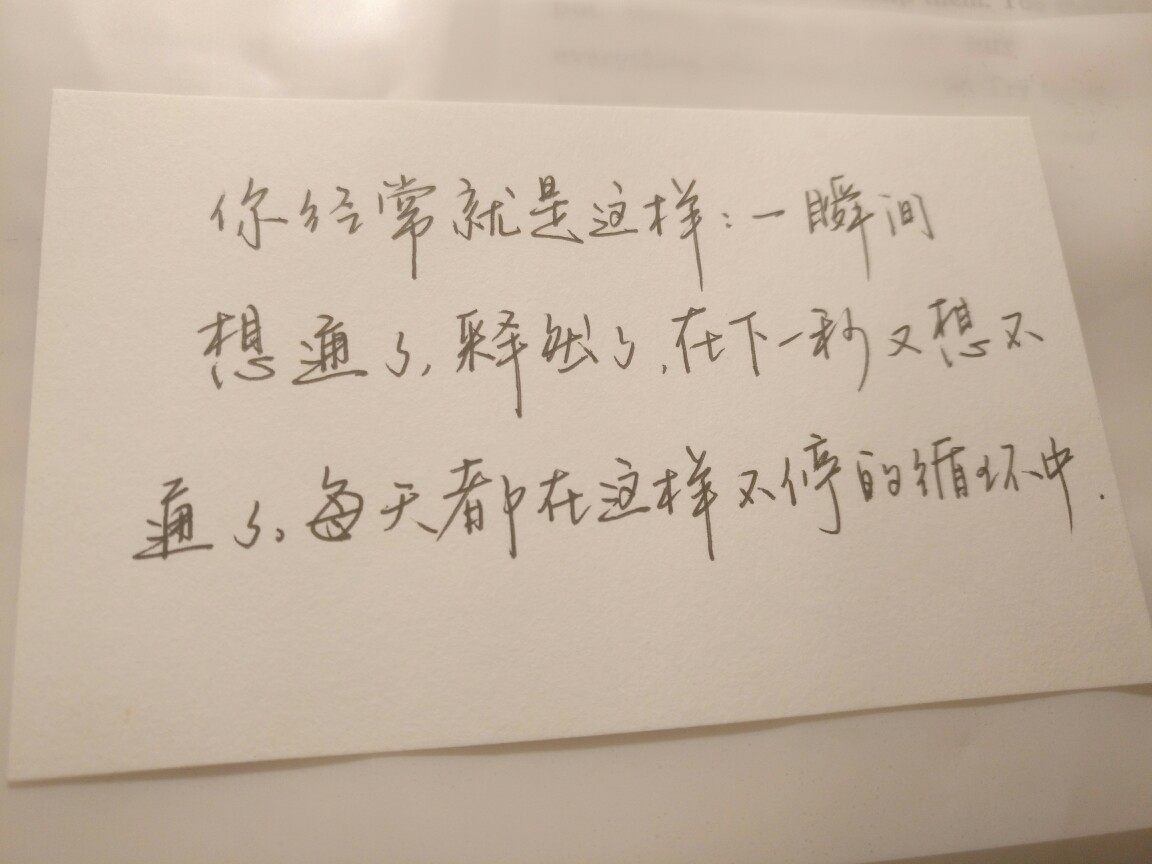 你经常就是这样:一瞬间
想通了,释然了,在下一秒又想不
通了。每天都在这样不停的循环中.